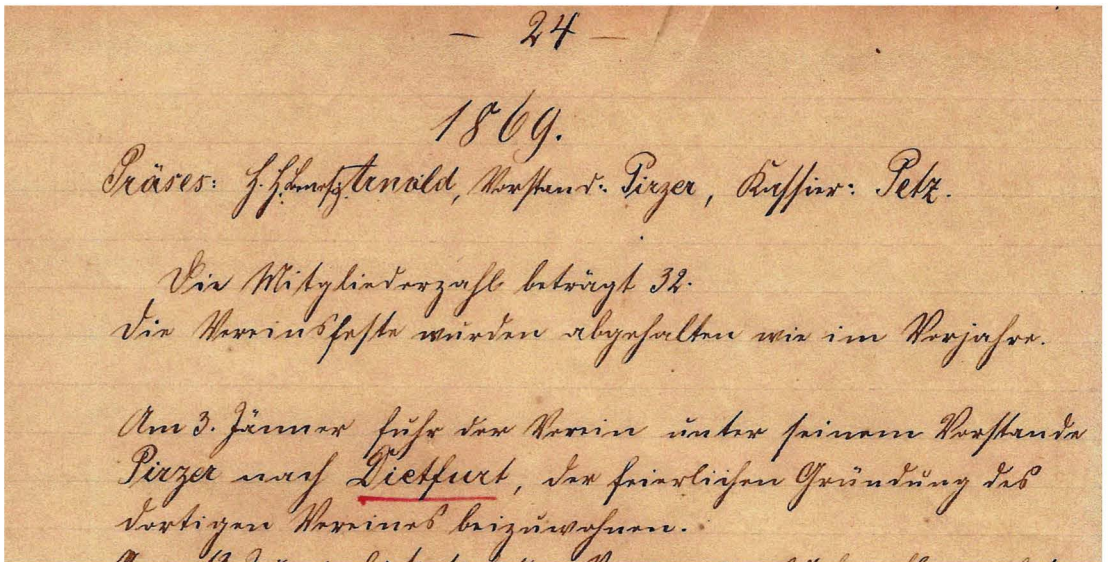 — 24 —
1869.
Präses: H. H. Benefiz. Arnold, Vorstand: Pirzer, Kassier: Petz.
Die Mitgliederzahl beträgt 32.
Die Vereinsfeste wurden abgehalten wie im Vorjahre.
Am 3. Jänner fuhr der Verein unter seinem Vorstande
Pirzer nach Dietfurt, der feierlichen Gründung des
dortigen Vereines beizuwohnen.